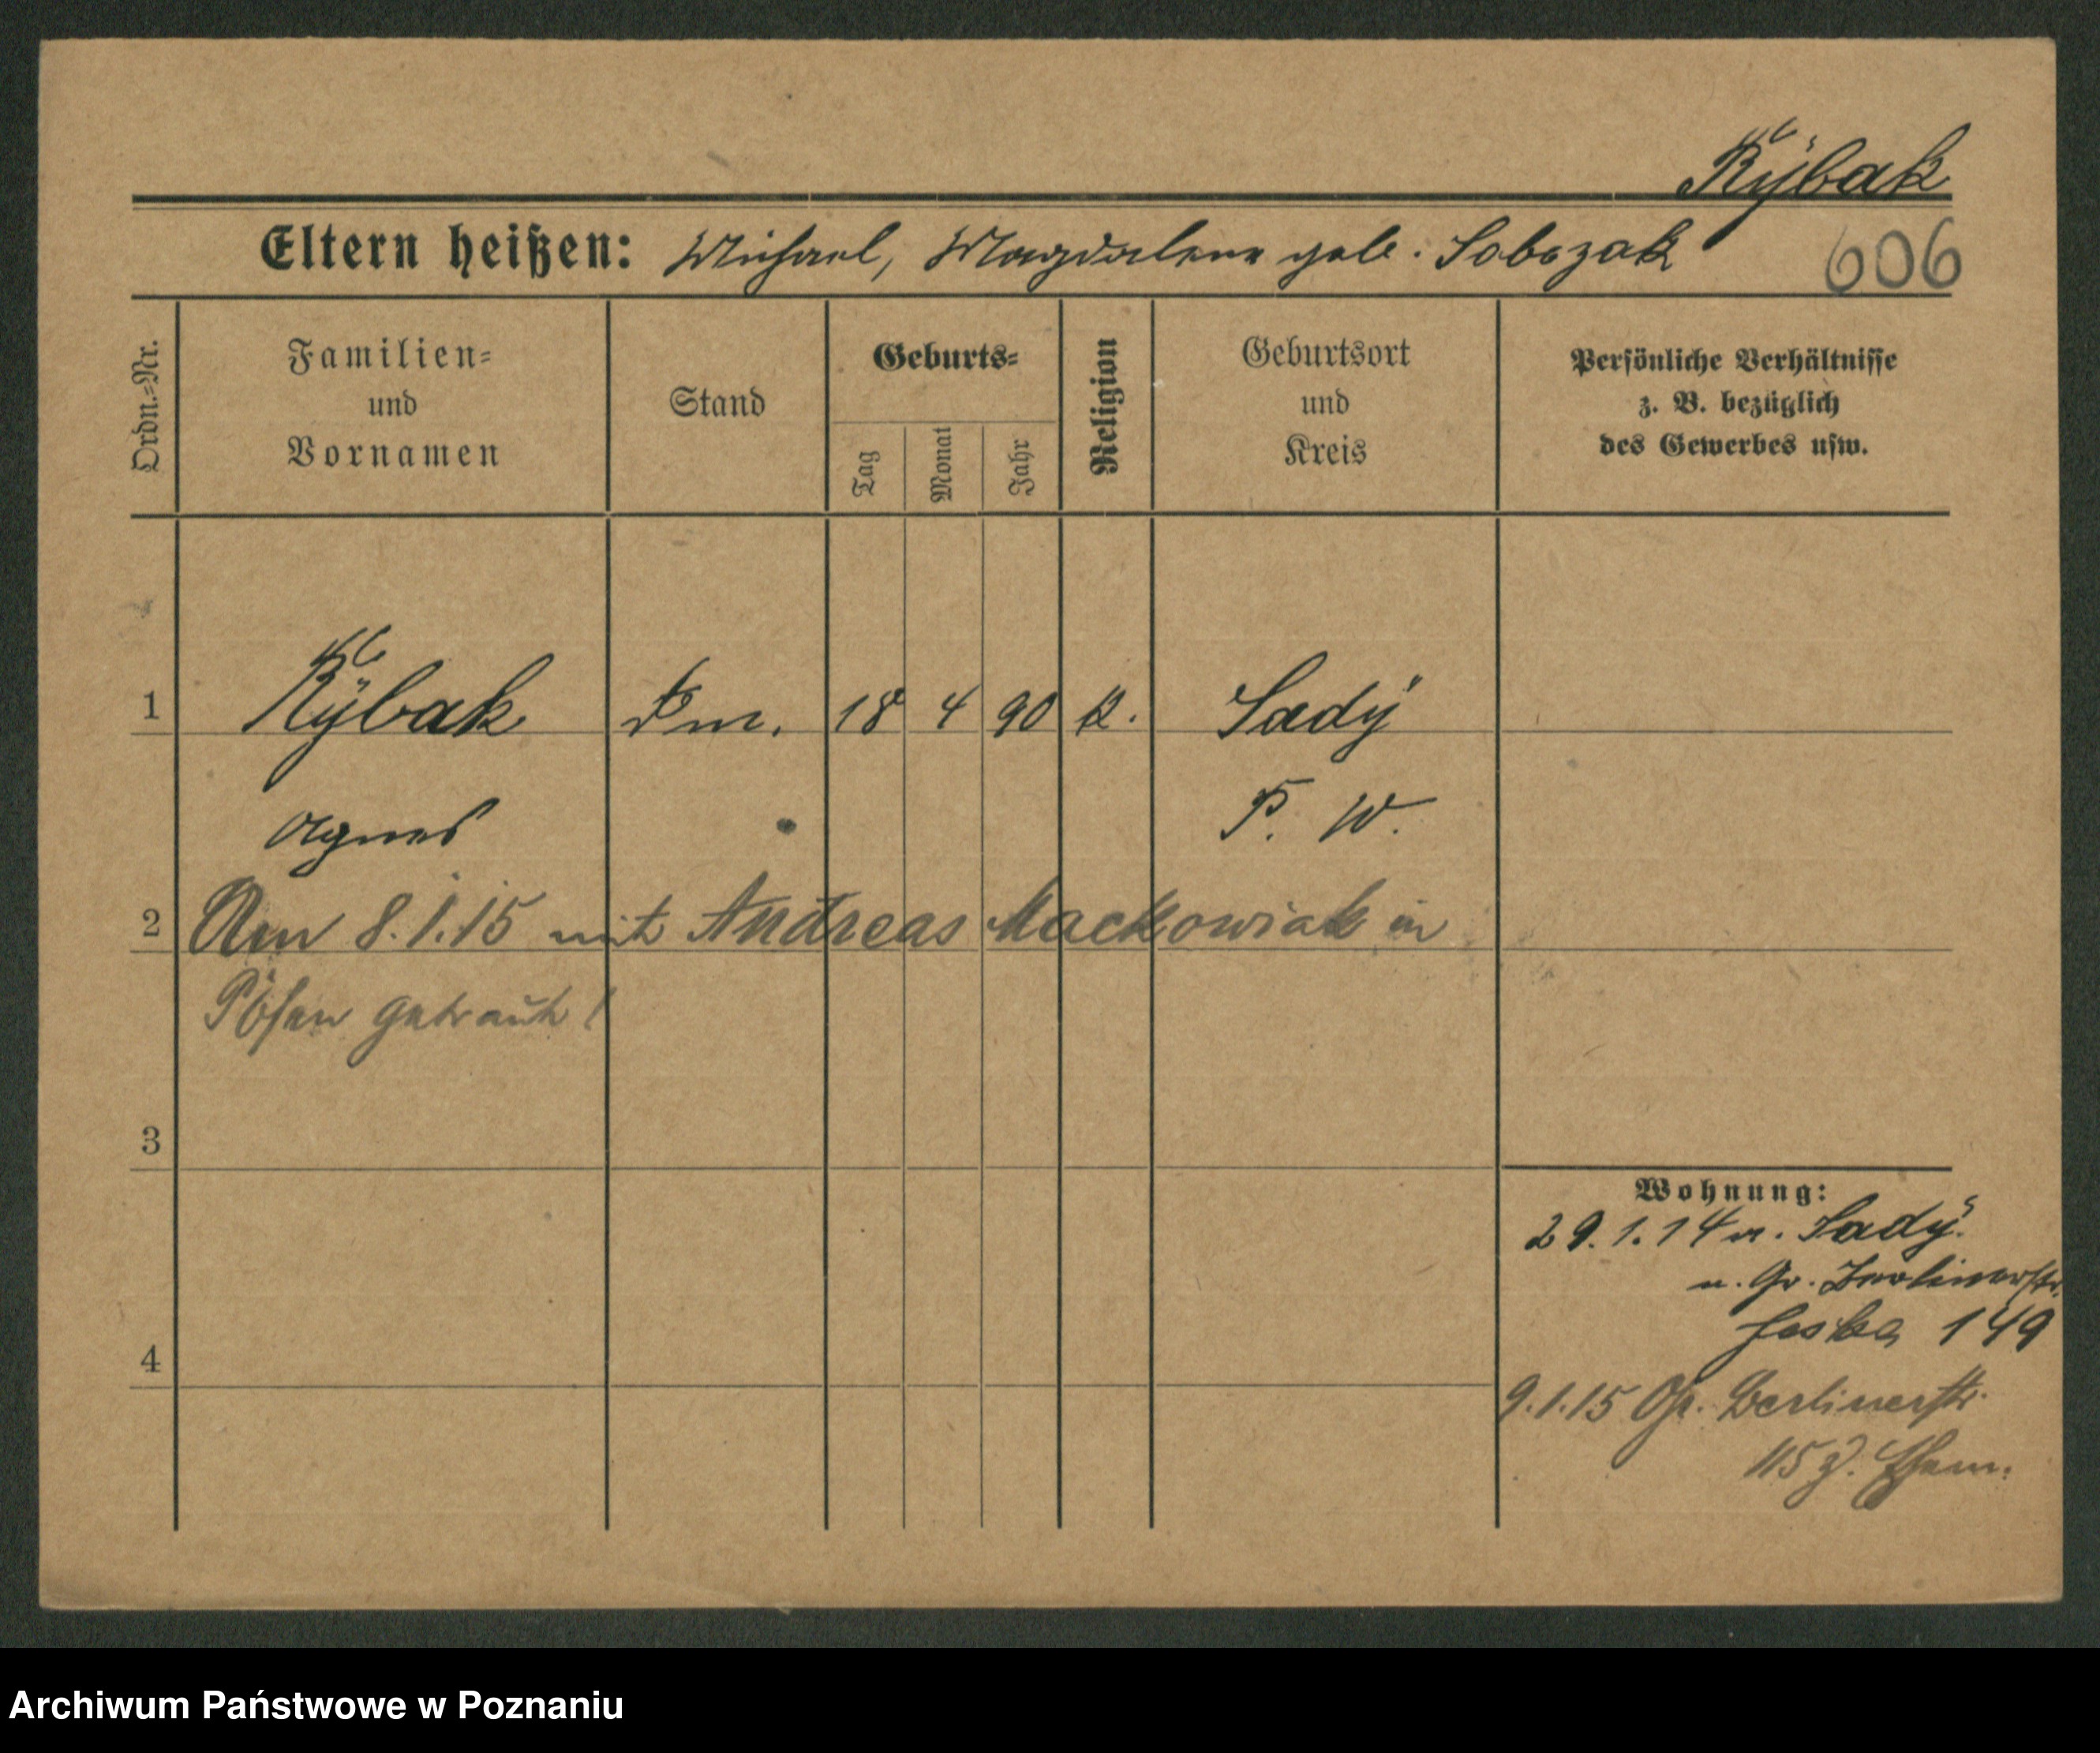 Rÿbak
Eltern heißen: Michael, Magdalena geb. Sobczak
606
Ordn.=Nr.
Familien=
und
Vornamen
Stand
Geburts=
Tag
Monat
Jahr
Religion
Geburtsort
und
Kreis
Persönliche Verhältnisse
z. B. bezüglich
des Gewerbes usw.
1 Rÿbak 18 4 90 k. Sadÿ
Agnes P. W.
2 Am 8.1.15 mit Andreas Mackowiak in
Posen getraut!
3
4
Wohnung:
29.1.14 v. Sadÿ
n. Gr. Berlinerstr.
149
9.1.15 Gr. Berlinerstr.
115 z. Ehem.
Archiwum Państwowe w Poznaniu